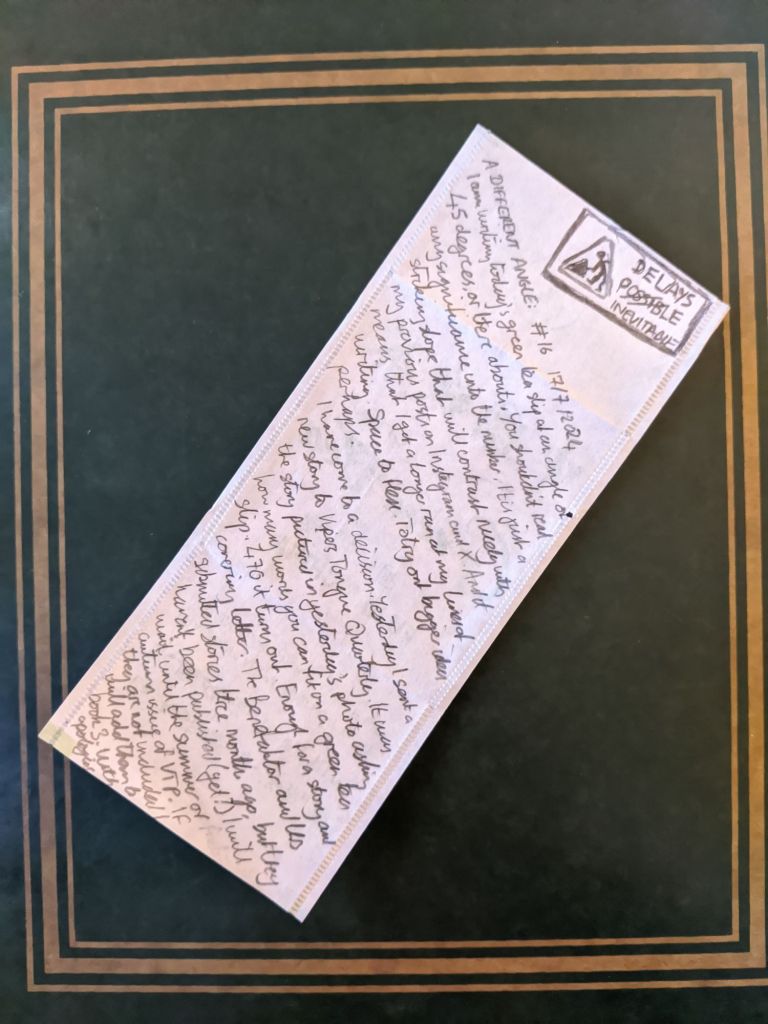 A DIFFERENT ANGLE: #16 17/7/2024
I am writing today's green tea slip at an angle of
45 degrees, or there abouts. You shouldn't read
any significance into the number. It is just a
striking slope that will contrast nicely with
my previous posts on Instagram and X. And it
means that I get a longer run of my line of
writing space to flex. To try out bigger ideas
perhaps.
I have come to a decision. Yesterday I sent a
new story to Vipers Tongue Quarterly. It was
the story pictured in yesterday's photo asking
how many words you can fit on a green tea
slip. 470 it turns out. Enough for a story and
covering letter. The Benefactor and
submitted stories three months ago, but they
haven't been published (yet!) I will
wait until the summer or
autumn issue of VTP. If
they are not included I
shall add them to
book 3, with
apologies
DELAYS
POSSIBLE
INEVITABLE